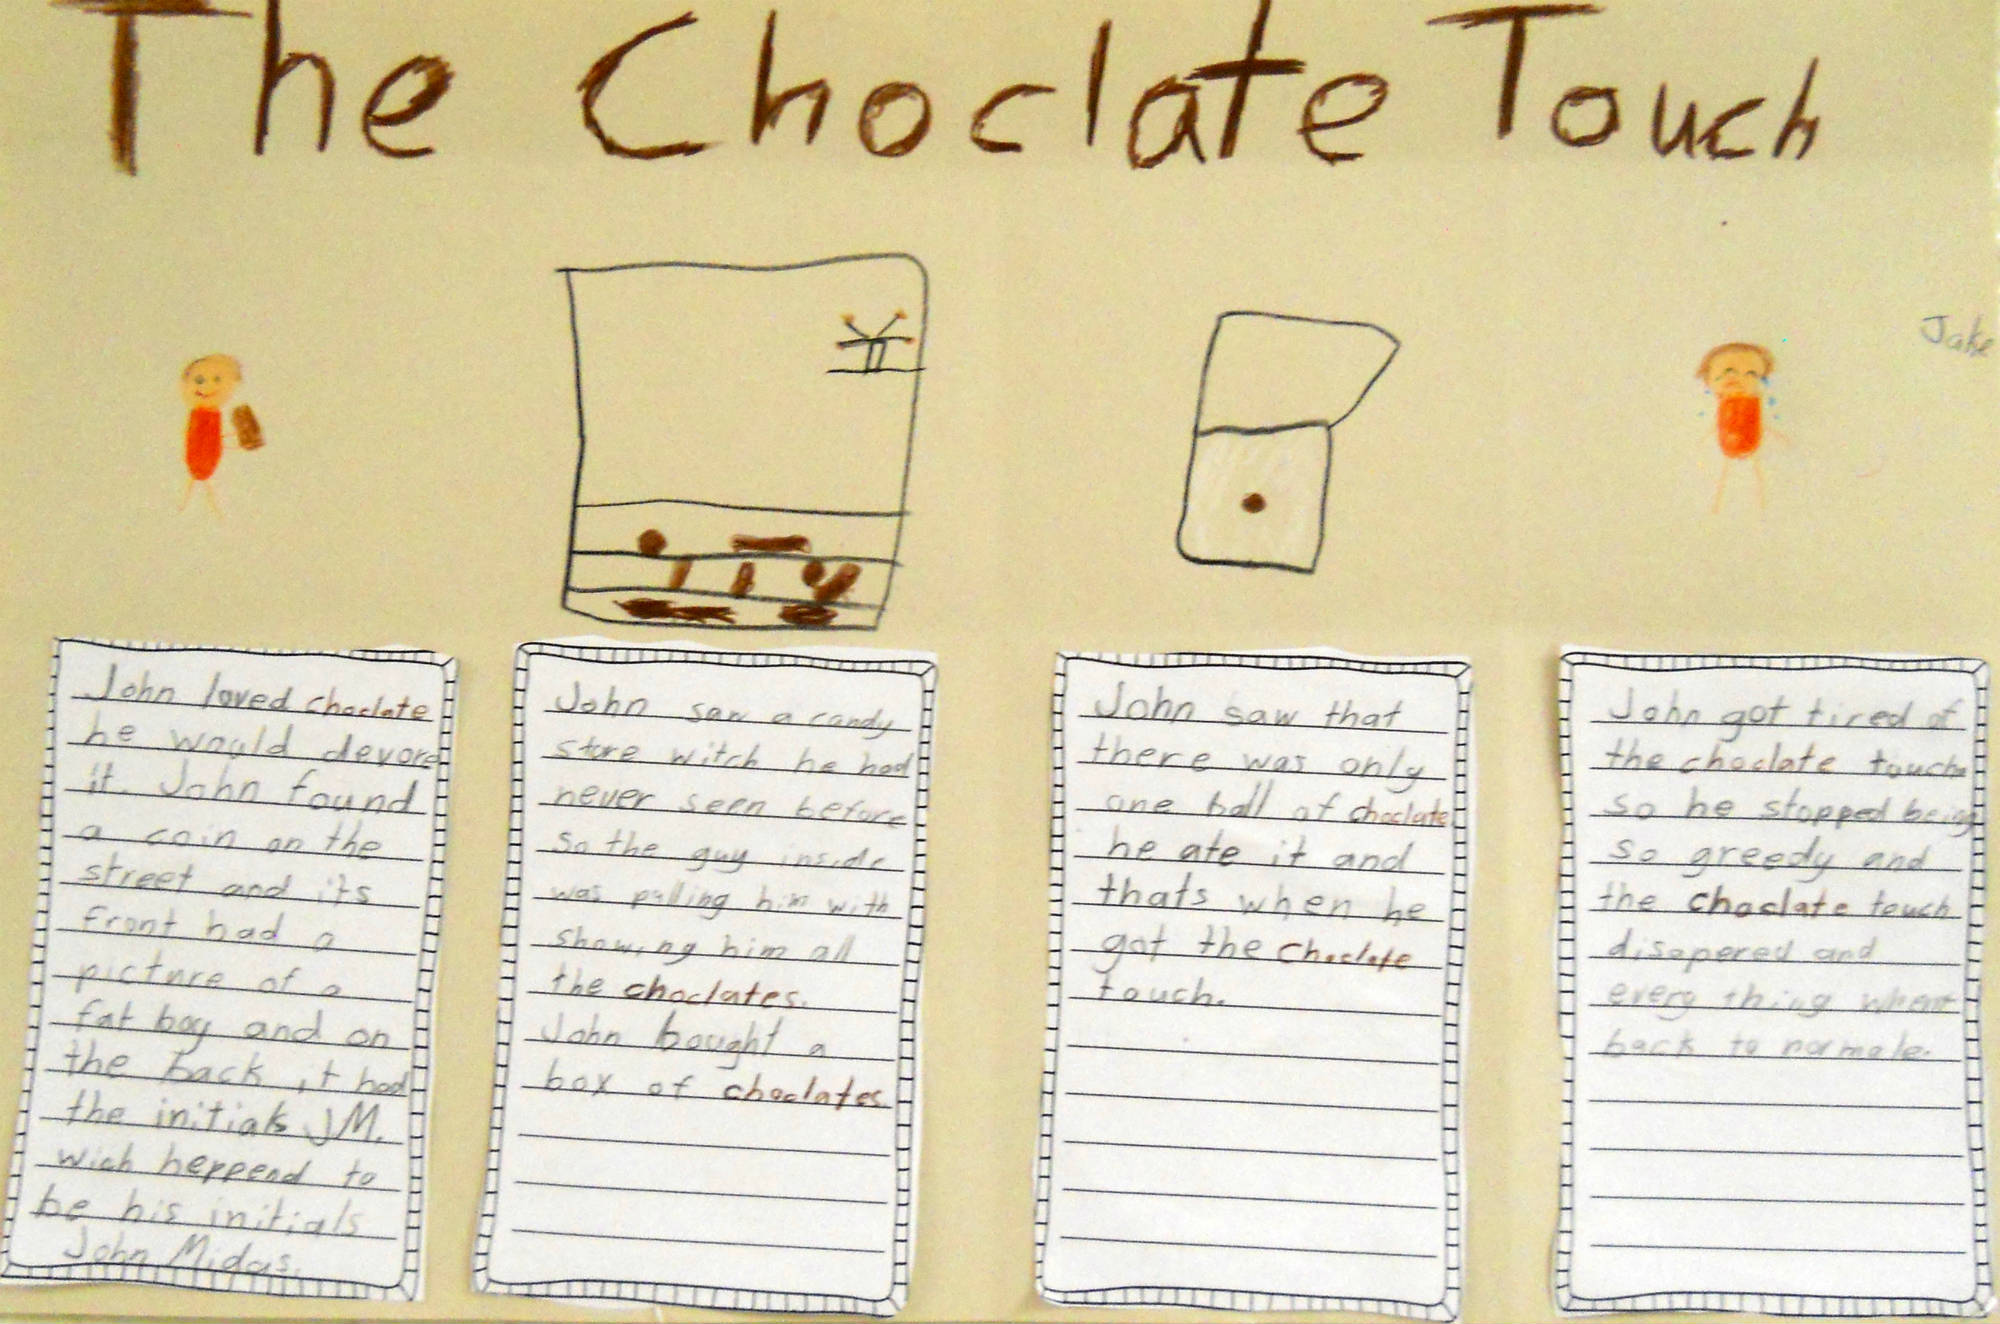 The Choclate Touch
Jake
John loved choclate
he would devore
it. John found
a coin on the
street and its
front had a
picture of a
fat boy and on
the back it had
the initials JM.
wich heppend to
be his initials
John Midas.
John saw a candy
store witch he had
never seen before
so the guy inside
was pulling him with
showing him all
the choclates.
John bought a
box of choclates.
John saw that
there was only
one ball of choclate
he ate it and
thats when he
got the choclate
touch.
John got tired of
the choclate touch
so he stopped being
so greedy and
the choclate touch
disapered and
every thing whent
back to normale.